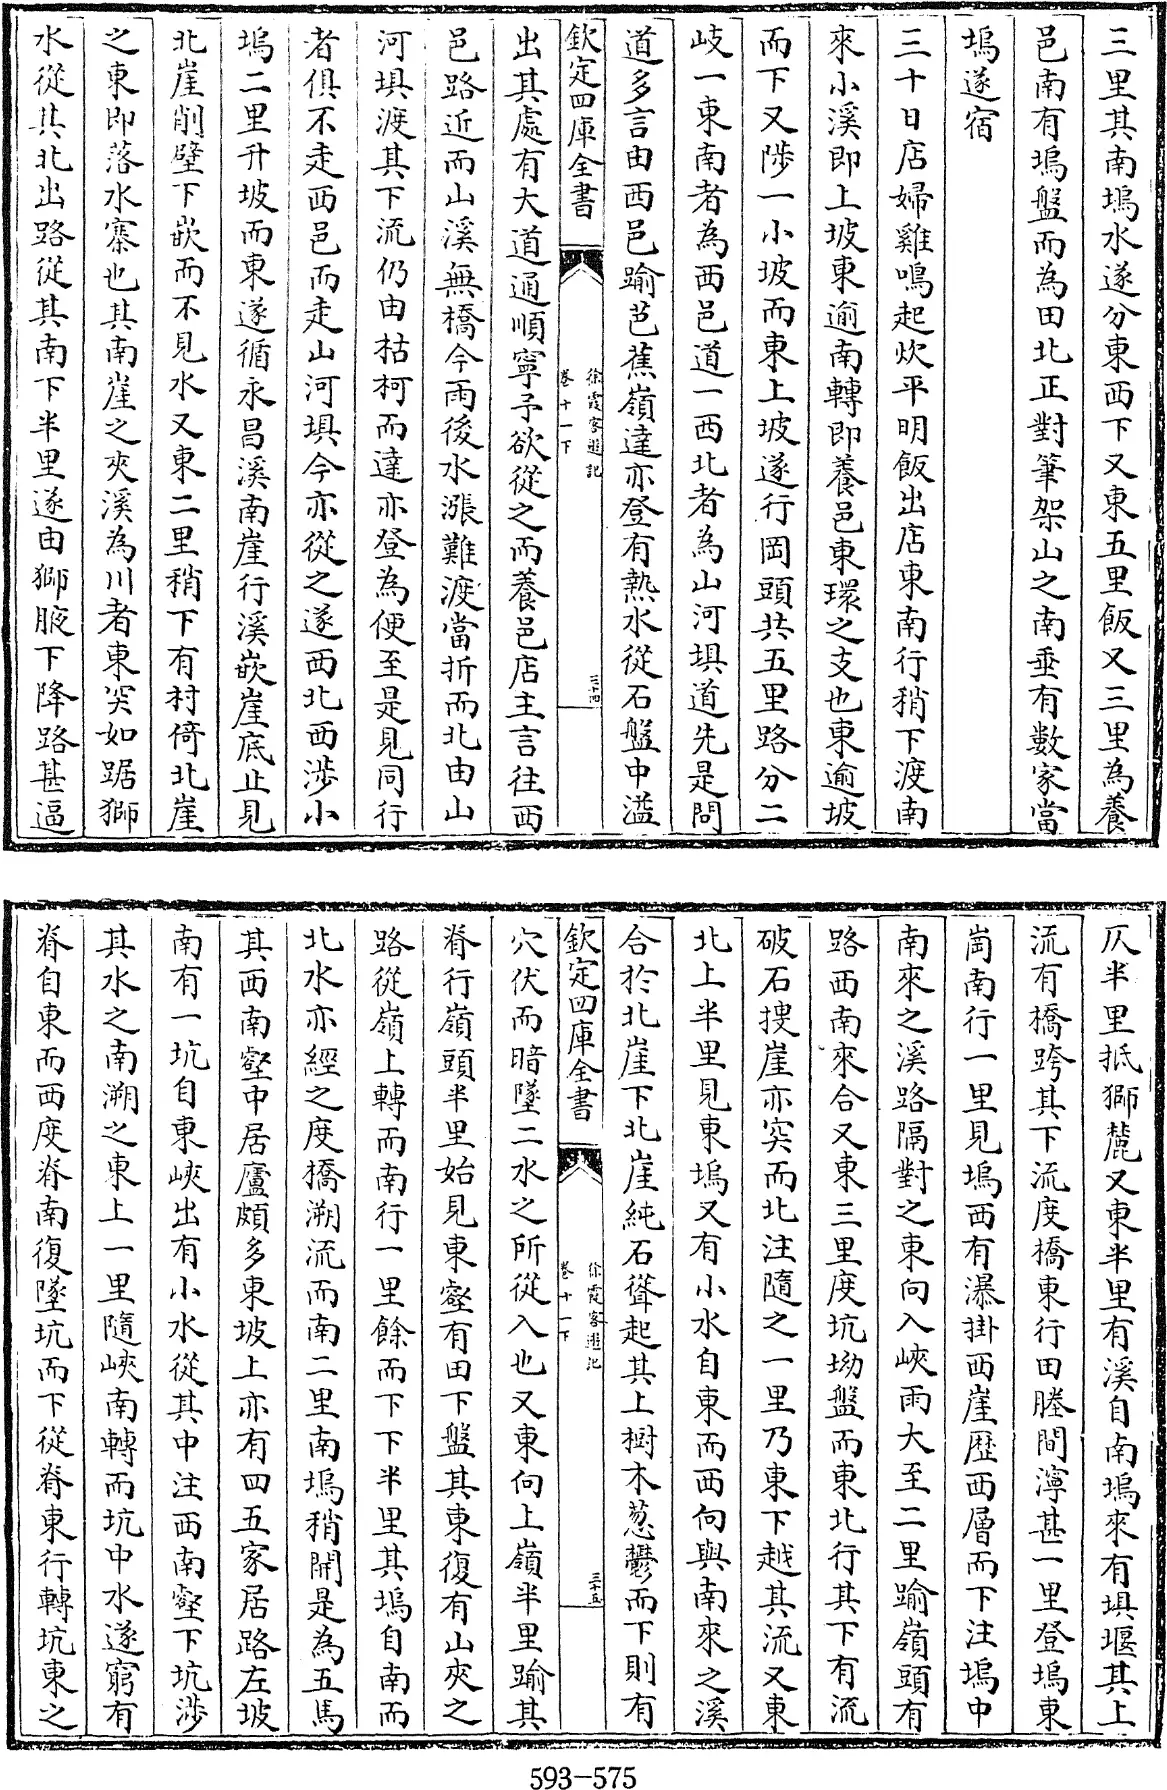 三里其南塢水遂分東西下又東五里飯又三里為養
邑南有塢盤而為田北正對筆架山之南垂有數家當
塢遂宿
三十日店婦雞鳴起炊平明飯出店東南行稍下渡南
來小溪即上坡東逾南轉即養邑東環之支也東逾坡
而下又陟一小坡而東上坡遂行岡頭共五里路分二
岐一東南者為西邑道一西北者為山河埧道先是問
道多言由西邑踰芭蕉嶺達亦登有熱水從石盤中溢
欽定四庫全書
徐霞客遊記
卷十一下
三十四
出其處有大道通順寧予欲從之而養邑店主言往西
邑路近而山溪無橋今雨後水漲難渡當折而北由山
河埧渡其下流仍由枯柯而達亦登為便至是見同行
者俱不走西邑而走山河埧今亦從之遂西北西涉小
塢二里升坡而東遂循永昌溪南崖行溪嵌崖底止見
北崖削壁下嵌而不見水又東二里稍下有村倚北崖
之東即落水寨也其南崖之夾溪為川者東突如踞獅
水從其北出路從其南下半里遂由獅腋下降路甚逼
仄半里抵獅麓又東半里有溪自南塢來有埧堰其上
流有橋跨其下流度橋東行田塍間濘甚一里登塢東
岡南行一里見塢西有瀑掛西崖歷西層而下注塢中
南來之溪路隔對之東向入峽雨大至二里踰嶺頭有
路西南來合又東三里度坑坳盤而東北行其下有流
破石搜崖亦突而北注隨之一里乃東下越其流又東
北上半里見東塢又有小水自東而西向與南來之溪
合於北崖下北崖純石聳起其上樹木葱鬱而下則有
欽定四庫全書
徐霞客遊記
卷十一下
三十五
穴伏而暗墜二水之所從入也又東向上嶺半里踰其
脊行嶺頭半里始見東壑有田下盤其東復有山夾之
路從嶺上轉而南行一里餘而下下半里其塢自南而
北水亦經之度橋溯流而南二里南塢稍開是為五馬
其西南壑中居廬頗多東坡上亦有四五家居路左坡
南有一坑自東峽出有小水從其中注西南壑下坑涉
其水之南溯之東上一里隨峽南轉而坑中水遂窮有
脊自東而西度脊南復墜坑而下從脊東行轉坑東之
593-575